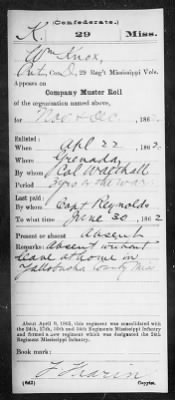 (Confederate.)
K. 29 Miss.
Wm Knox,
Pvt., Co. K, 29 Reg't Mississippi Vols.
Appears on
Company Muster Roll
of the organization named above,
for Nov & Dec, 186
Enlisted:
When Apl 22, 1862.
Where Grenada,
By whom Col Walthall
Period 3 yrs or the war.
Last paid:
By whom Capt Reynolds
To what time June 30, 1862
Present or absent absent
Remarks: Absent without
leave at home in
Yallobusha County Miss
About April 9, 1865, this regiment was consolidated with
the 24th, 27th, 30th and 34th Regiments Mississippi Infantry
and formed a new regiment which was designated the 24th
Regiment Mississippi Infantry.
Book mark:
(642) Copyist.